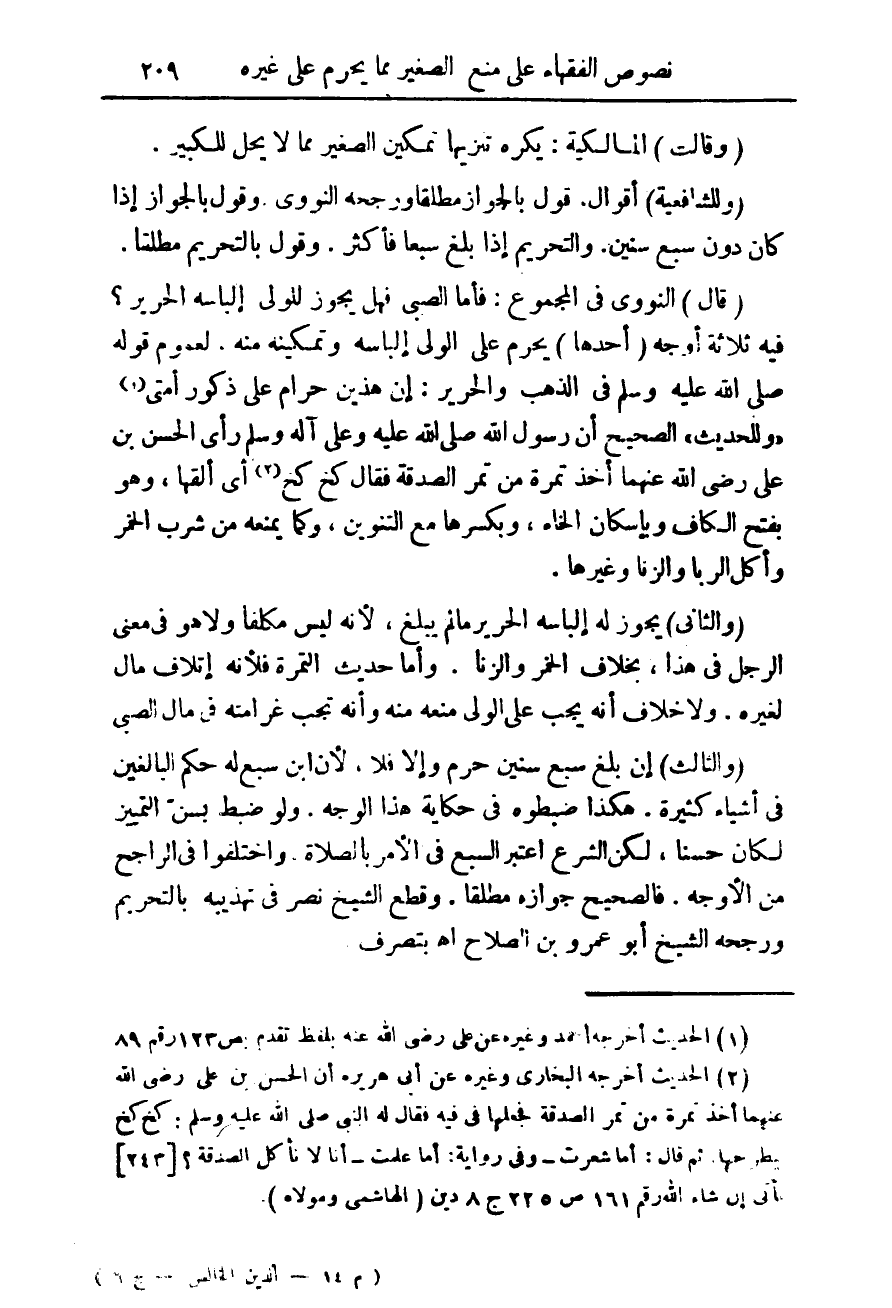 نصوص الفقهاء على منع الصغير مما يحرم على غيره ٢٠٩
( وقالت ) المالكية : يكره تنزيها تمكين الصغير مما لا يحل للكبير .
(وللشافعية) أقوال. قول بالجواز مطلقا ورجحه النووى . وقول بالجواز إذا
كان دون سبع سنين. والتحريم إذا بلغ سبعا فأكثر . وقول بالتحريم مطلقا .
( قال ) النووى فى المجموع : فأما الصبى فهل يجوز للولى إلباسه الحرير ؟
فيه ثلاثة أوجه ( أحدها ) يحرم على الولى إلباسه وتمكينه منه . لعموم قوله
صلى الله عليه وسلم فى الذهب والحرير : إن هذين حرام على ذكور أمتى(١)
«وللحديث» الصحيح أن رسول الله صلى الله عليه وعلى آله وسلم رأى الحسن بن
على رضى الله عنهما أخذ تمرة من تمر الصدقة فقال كخ كخ(٢) أى ألقها ، وهو
بفتح الكاف وبإسكان الخاء ، وبكسرها مع التنوين ، وكما يمنعه من شرب الخمر
وأكل الربا والزنا وغيرها .
(والثانى) يجوز له إلباسه الحرير مالم يبلغ ، لأنه ليس مكلفا ولا هو فى معنى
الرجل فى هذا ، بخلاف الخمر والزنا . وأما حديث التمرة فلأنه إتلاف مال
لغيره . ولا خلاف أنه يجب على الولى منعه منه وأنه تجب غرامته فى مال الصبى
(والثالث) إن بلغ سبع سنين حرم وإلا فلا ، لأن ابن سبع له حكم البالغين
فى أشياء كثيرة . هكذا ضبطوه فى حكاية هذا الوجه . ولو ضبط بسنّ التمييز
لكان حسنا ، لكن الشرع اعتبر السبع فى الأمر بالصلاة . واختلفوا فى الراجح
من الأوجه . فالصحيح جوازه مطلقا . وقطع الشيخ نصر فى تهذيبه بالتحريم
ورجحه الشيخ أبو عمرو بن الصلاح اه بتصرف
(١) الحديث أخرجه أحمد وغيره عن على رضى الله عنه بلفظ تقدم بص ١٢٣ رقم ٨٩
(٢) الحديث أخرجه البخارى وغيره عن أبى هريره أن الحسن بن على رضى الله
عنهما أخذ تمرة من تمر الصدقة فجعلها فى فيه فقال له النبى صلى الله عليه وسلم : كخ كخ
ليطرحها. ثم قال : أما شعرت ــ وفى رواية: أما علمت ــ أنا لا نأكل الصدقة ؟ [٢٤٣]
يأتى إن شاء الله رقم ١٦١ ص ٢٢٥ ج ٨ دين ( الهاشمى ومولاه ).
( م ١٤ — الدين الخالص — ج ٦ )